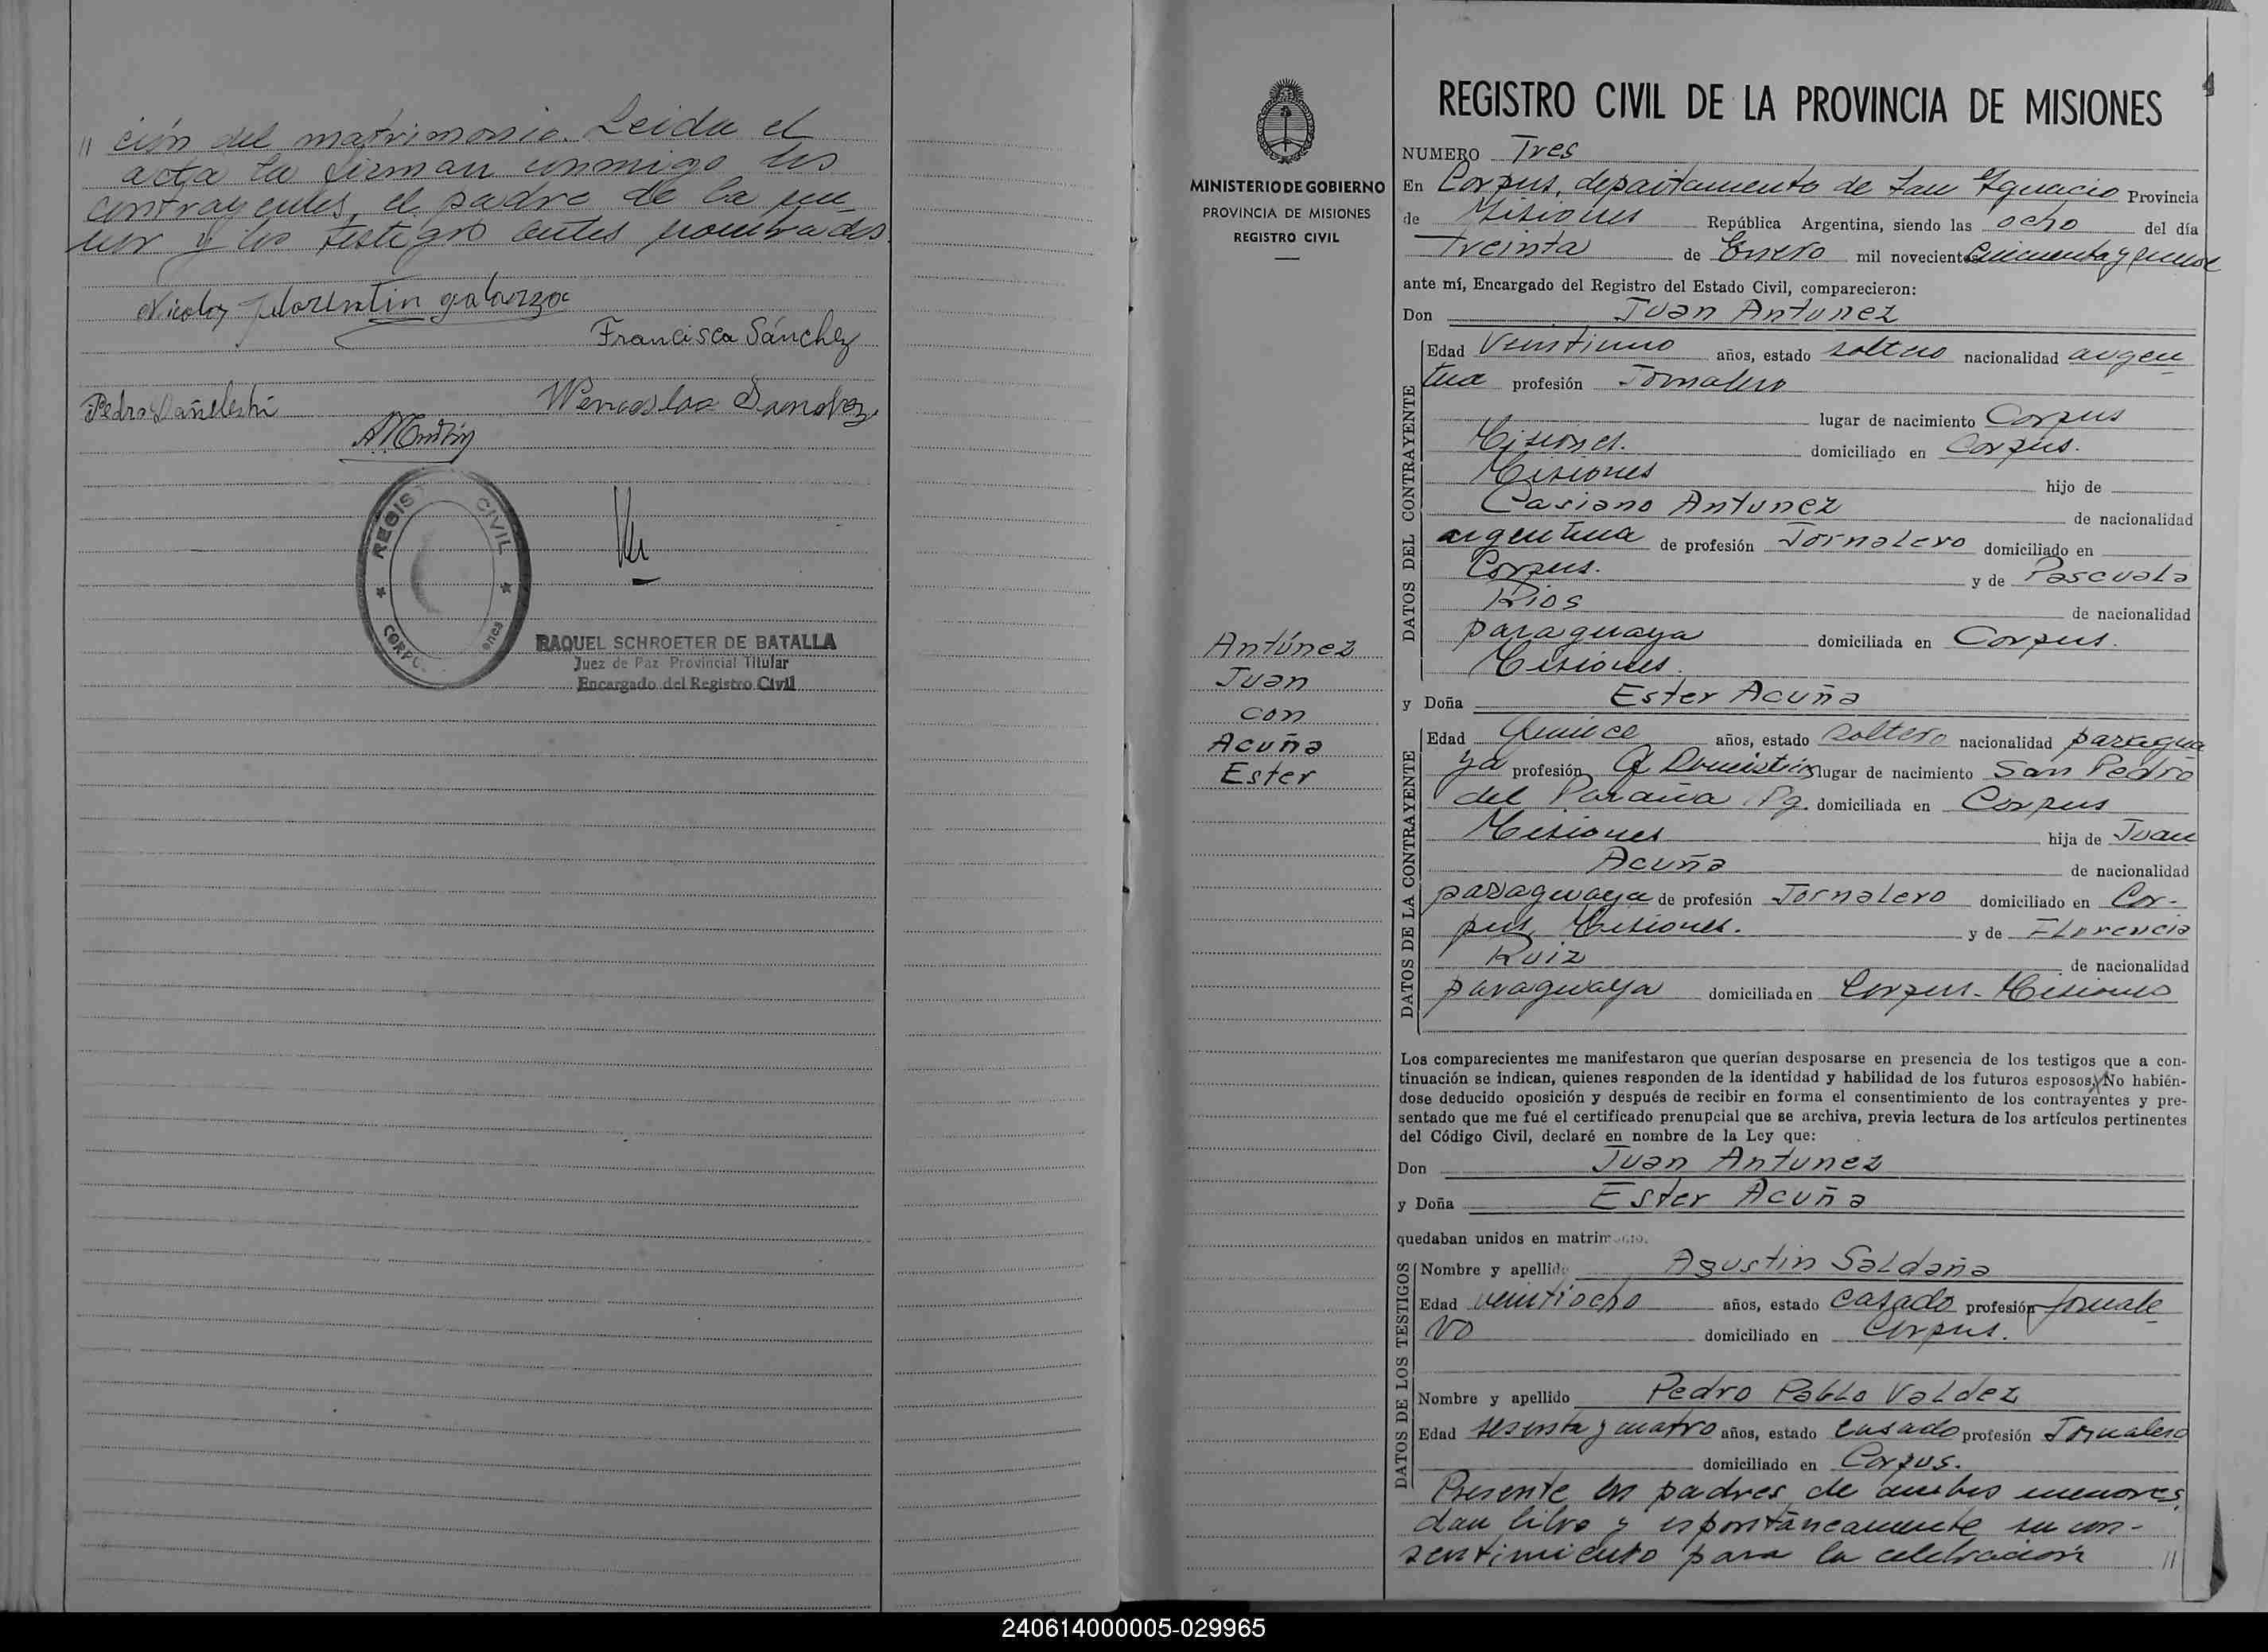 " ción del matrimonio. Leida el
acta la firman conmigo los
contrayentes, el padre de la me-
nor y los testigos antes nombrados
Nicolas Florentin galarza
Francisca Sánchez
Pedro
Wenceslao Sanchez
REGIS CIVIL
CORPUS
RAQUEL SCHROETER DE BATALLA
Juez de Paz Provincial Titular
Encargado del Registro Civil
MINISTERIO DE GOBIERNO
PROVINCIA DE MISIONES
REGISTRO CIVIL
Antúnez
Juan
con
Acuña
Ester
REGISTRO CIVIL DE LA PROVINCIA DE MISIONES
NUMERO Tres
En Corpus, departamento de San Ignacio Provincia
de Misiones República Argentina, siendo las ocho del día
Treinta de Enero mil novecientos cincuenta y nueve
ante mí, Encargado del Registro del Estado Civil, comparecieron:
Don Juan Antunez
DATOS DEL CONTRAYENTE
Edad Veintiuno años, estado soltero nacionalidad argen
tina profesión Jornalero
lugar de nacimiento Corpus
Misiones. domiciliado en Corpus.
Misiones hijo de
Casiano Antunez de nacionalidad
argentina de profesión Jornalero domiciliado en
Corpus. y de Pascuala
Rios de nacionalidad
paraguaya domiciliada en Corpus.
Misiones.
y Doña Ester Acuña
DATOS DE LA CONTRAYENTE
Edad Quince años, estado soltera nacionalidad paragua
ya profesión Q Domésticos lugar de nacimiento San Pedro
del Paraná, Pg. domiciliada en Corpus
Misiones hija de Juan
Acuña de nacionalidad
paraguaya de profesión Jornalero domiciliado en Cor-
pus, Misiones. y de Florencia
Ruiz de nacionalidad
paraguaya domiciliada en Corpus - Misiones
Los comparecientes me manifestaron que querían desposarse en presencia de los testigos que a con-
tinuación se indican, quienes responden de la identidad y habilidad de los futuros esposos. No habién-
dose deducido oposición y después de recibir en forma el consentimiento de los contrayentes y pre-
sentado que me fué el certificado prenupcial que se archiva, previa lectura de los artículos pertinentes
del Código Civil, declaré en nombre de la Ley que:
Don Juan Antunez
y Doña Ester Acuña
quedaban unidos en matrimonio.
DATOS DE LOS TESTIGOS
Nombre y apellido Agustin Saldaña
Edad veintiocho años, estado casado profesión Jornale
ro domiciliado en Corpus.
Nombre y apellido Pedro Pablo Valdez
Edad sesenta y cuatro años, estado casado profesión Jornalero
domiciliado en Corpus.
Presente los padres de ambos menores,
dan libre y espontáneamente su con-
sentimiento para la celebracion //
240614000005-029965